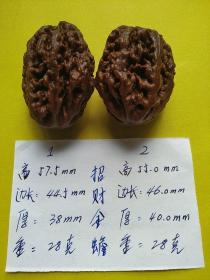 1 2
高 57.5mm 招 高 55.0mm
边长: 44.5mm 财 边长: 46.0mm
厚: 38mm 金 厚: 40.0mm
重= 28克 蟾 重= 28克